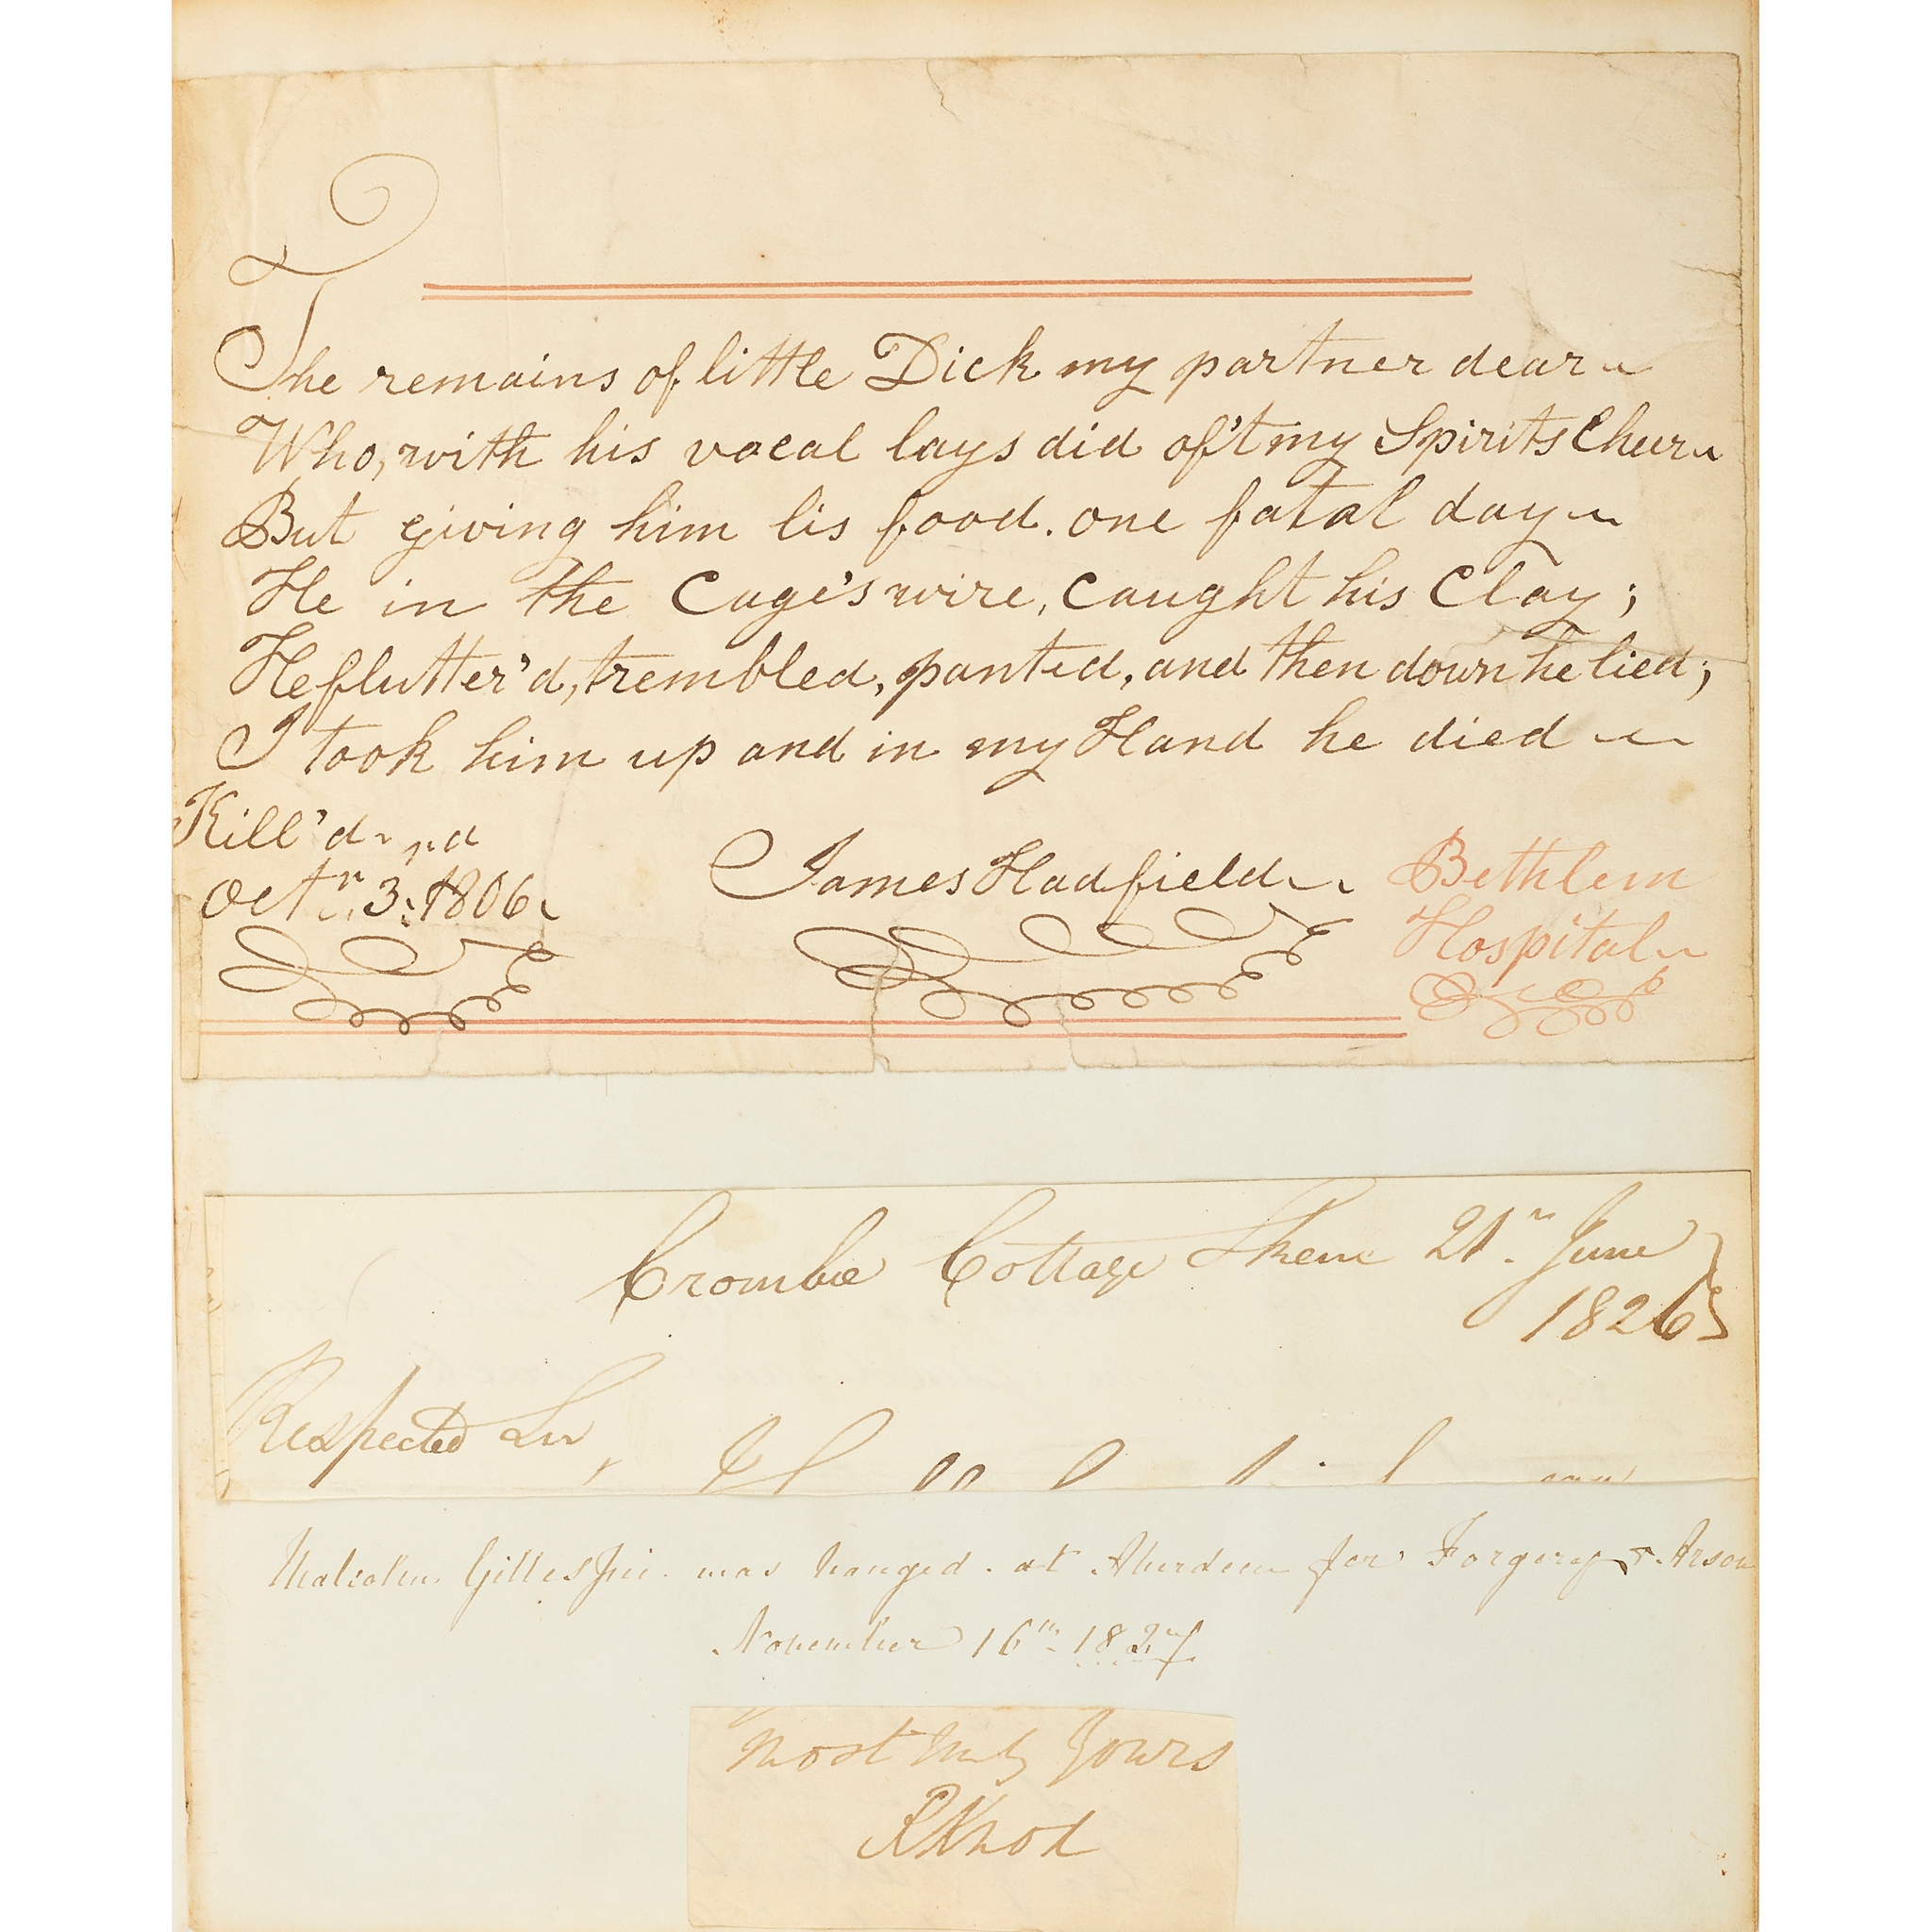 The remains of little Dick my partner dear
Who, with his vocal lays did of't my Spirits Cheer
But giving him lis food. one fatal day
He in the Cage's wire, Caught his Clay;
He flutter'd, trembled, panted, and then down he lied;
I took him up and in my Hand he died
Kill'd
Octr. 3: 1806
James Hadfield
Bethlem
Hospital
Crombie Cottage Skene 21st June
1826
Respected Sir
Malcolm Gillespie was hanged at Aberdeen for Forgery & Arson
November 16th 1827
Most truly Yours